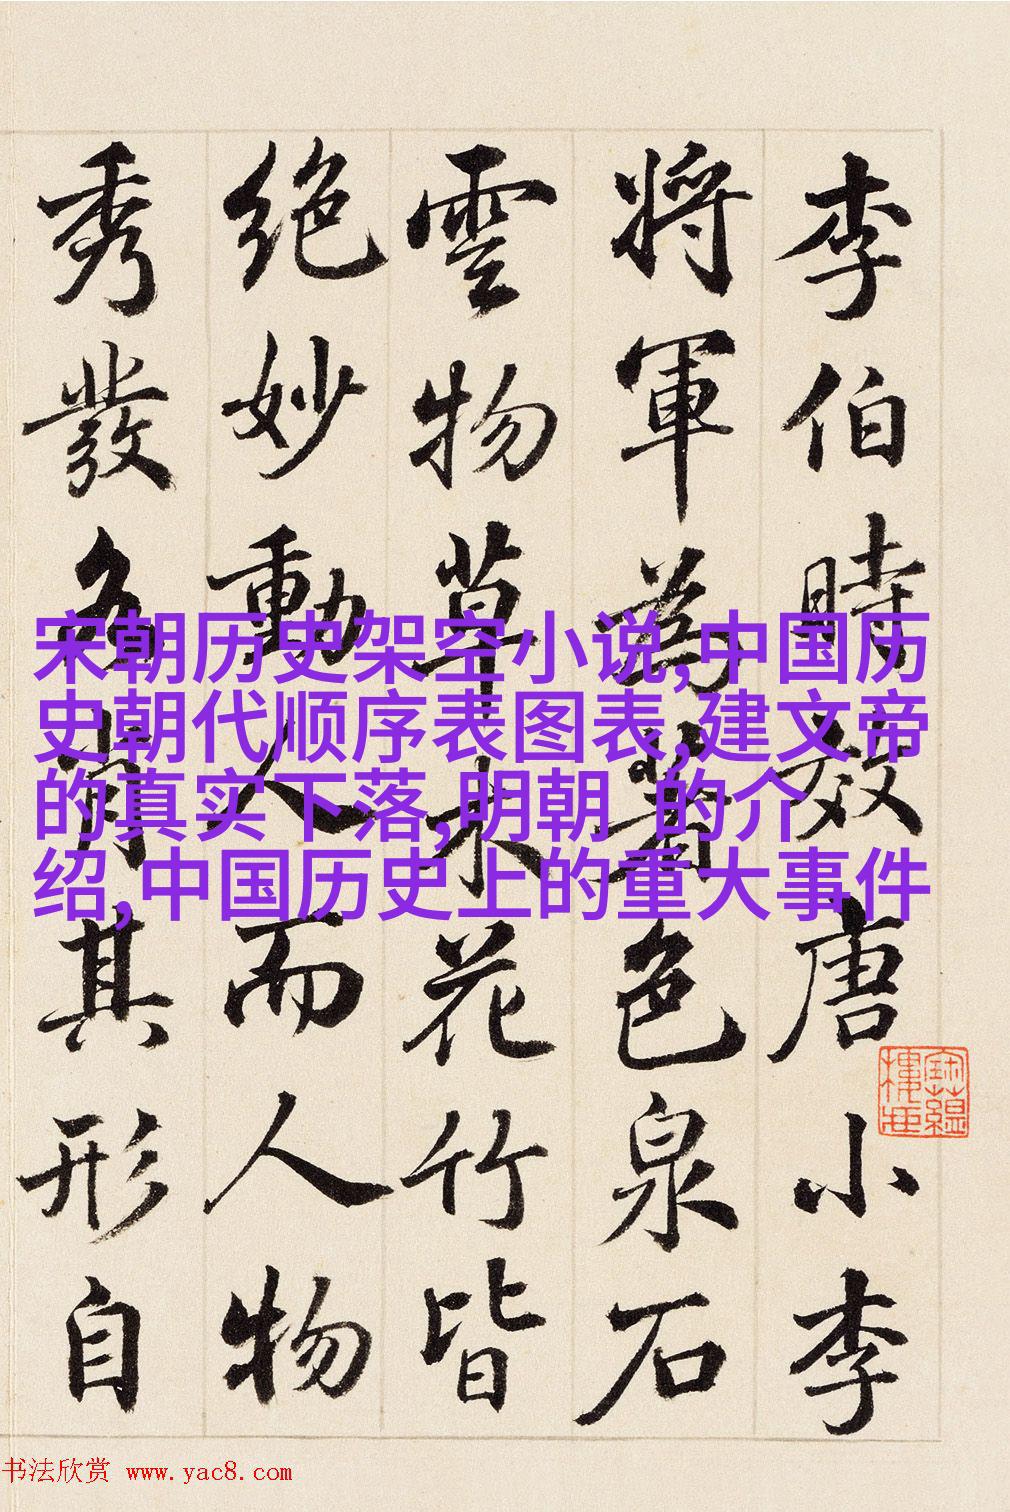 李伯時效唐小李
將軍為著色泉石
雲物草木花竹皆
絕妙動人而人物
秀發各肖其形自
宋朝历史架空小说,中国历
史朝代顺序表图表,建文帝
的真实下落,明朝 的介
绍,中国历史上的重大事件
书法欣赏 www.yac8.com